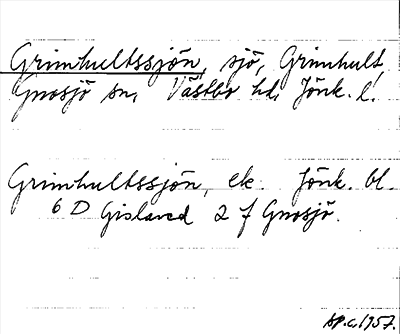 Grimhultssjön, sjö, Grimhult,
Gnosjö sn, Västbo hd, Jönk. l.
Grimhultssjön, ek. Jönk. bl.
6 D Gislaved 2 f Gnosjö.
1957.